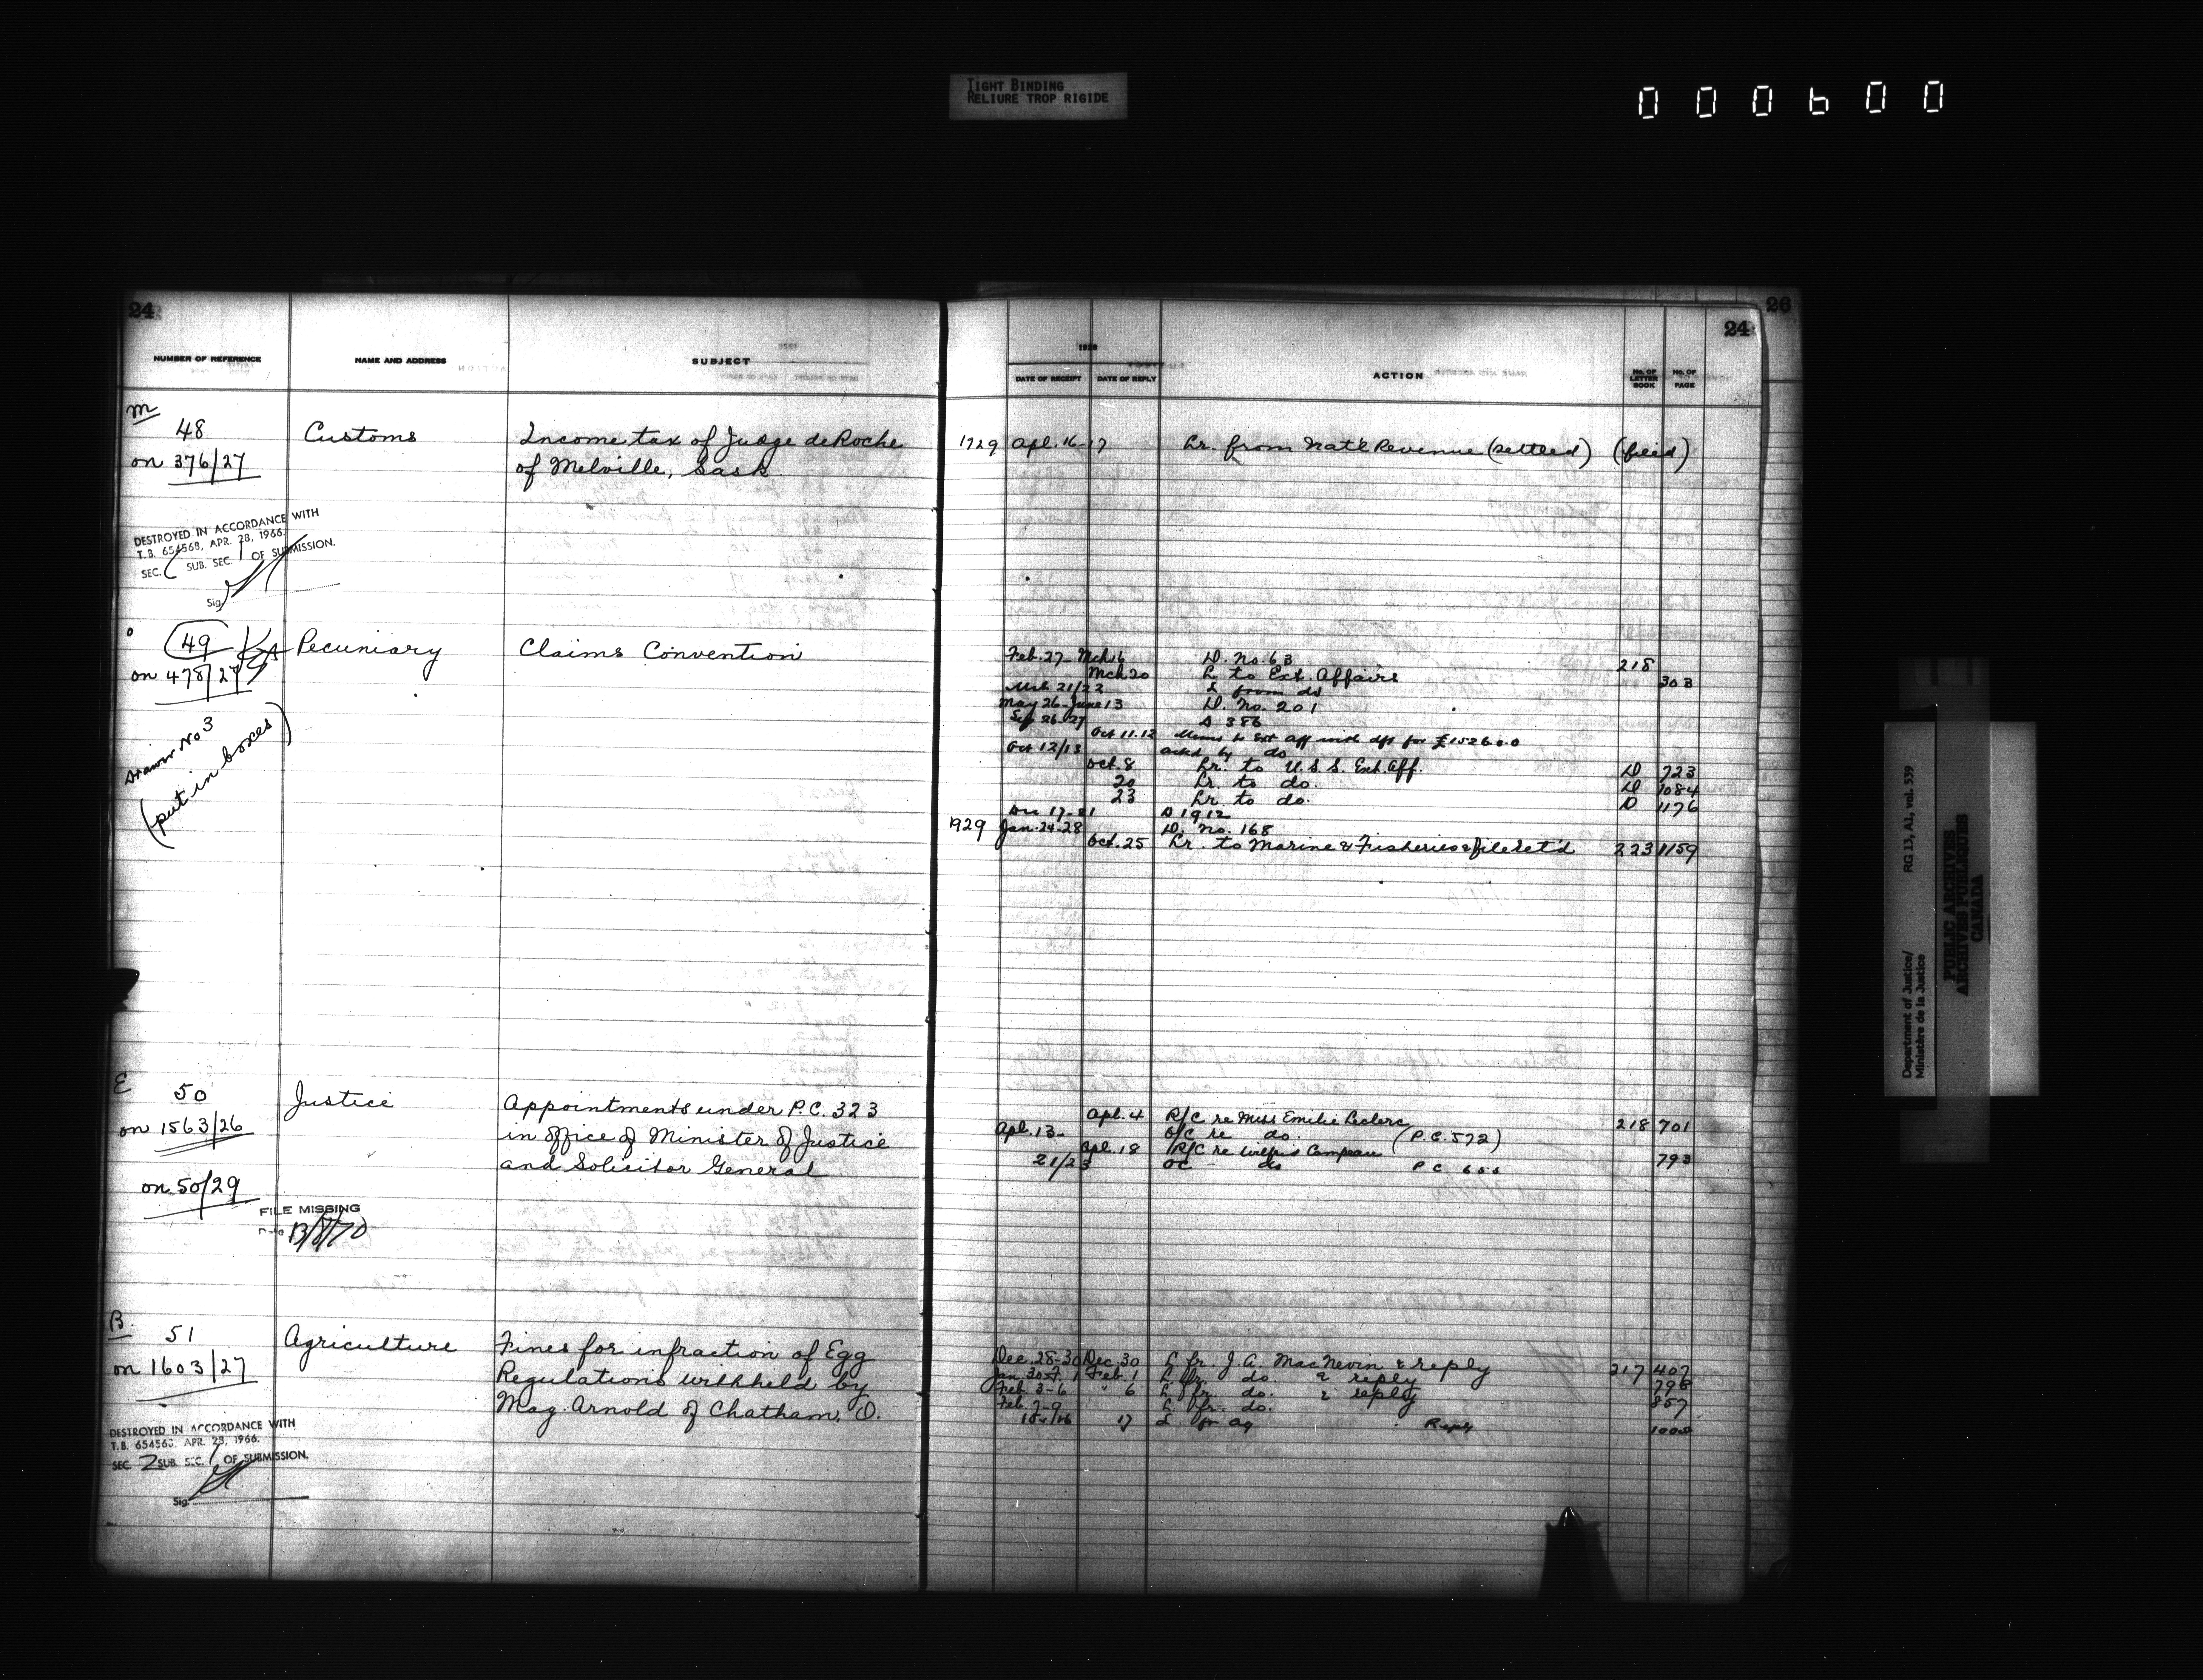 TIGHT BINDING
RELIURE TROP RIGIDE
000600
24
NUMBER OF REFERENCE NAME AND ADDRESS SUBJECT
M
48 Customs Income tax of Judge deRoche
on 376/27 of Melville, Sask.
DESTROYED IN ACCORDANCE WITH
T.B. 654568, APR. 28, 1966.
SEC. SUB. SEC. 1 OF SUBMISSION.
Sig.
49 Pecuniary Claims Convention
on 478/27
Drawer No 3
(put in boxes)
E
50 Justice Appointments under P.C. 323
on 1563/26 in office of Minister of Justice
and Solicitor General
on 50/29
FILE MISSING
13/8/70
B.
51 Agriculture Fines for infraction of Egg
on 1603/27 Regulations withheld by
Mag. Arnold of Chatham, O.
DESTROYED IN ACCORDANCE WITH
T.B. 654568, APR. 28, 1966.
SEC. 2 SUB. SEC. 1 OF SUBMISSION.
Sig.
26
24
1928
DATE OF RECEIPT DATE OF REPLY ACTION No. OF LETTER BOOK No. OF PAGE
1929 Apl. 16-17 Lr. from Nat'l Revenue (settled) (filed)
Feb. 27- Mch 6 D. No. 63 218
Mch 20 L to Ext. Affairs 303
Mch 21/22 L from do
May 26-June 13 D. No. 201
Sep 26-27 D 386
Oct 11.12 Memo to Ext Aff with dft for £1526.0.0
Oct 12/13 ackd by do
Oct. 8 Lr. to U.S.S. Ext. Aff. D 723
20 Lr. to do. D 1084
23 Lr. to do. D 1176
Dec 17-21 D 1912
1929 Jan. 24-28 D. No. 168
Oct. 25 Lr. to Marine & Fisheries & file ret'd 223 1159
Apl. 4 R/C re Miss Emilie Leclerc 218 701
Apl. 13- O/C re do. (P.C. 572)
Apl. 18 R/C re Wilfrid Campeau 793
21/23 OC - do P C 655
Dec. 28-30 Dec. 30 L fr. J.A. MacNevin & reply 217 407
Jan. 30-F. 1 Feb. 1 L fr. do. & reply 798
Feb. 3-6 " 6 L fr. do. & reply 857
Feb. 7-9 L fr. do.
15/16 17 L fr Ag Reply
Department of Justice/
Ministère de la Justice
RG 13, A1, vol. 539
PUBLIC ARCHIVES
ARCHIVES PUBLIQUES
CANADA